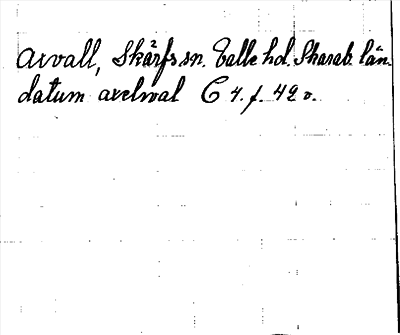 Axvall, Skärfs sn. Valle hd. Skarab. län.
datum axelwal C 4. f. 42 v.